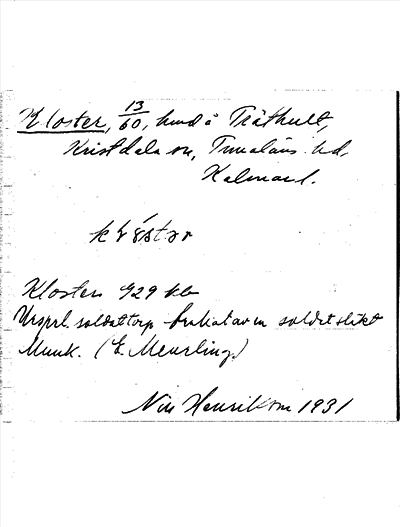 Kloster, 13/60, hmd å Träthult,
Kristdala sn, Tunaläns hd,
Kalmar l.
Kloster 929 kb
Ursprl. soldattorp brukat av en soldatsläkt
Munk. (E. Meurling)
Nils Henriksson 1931